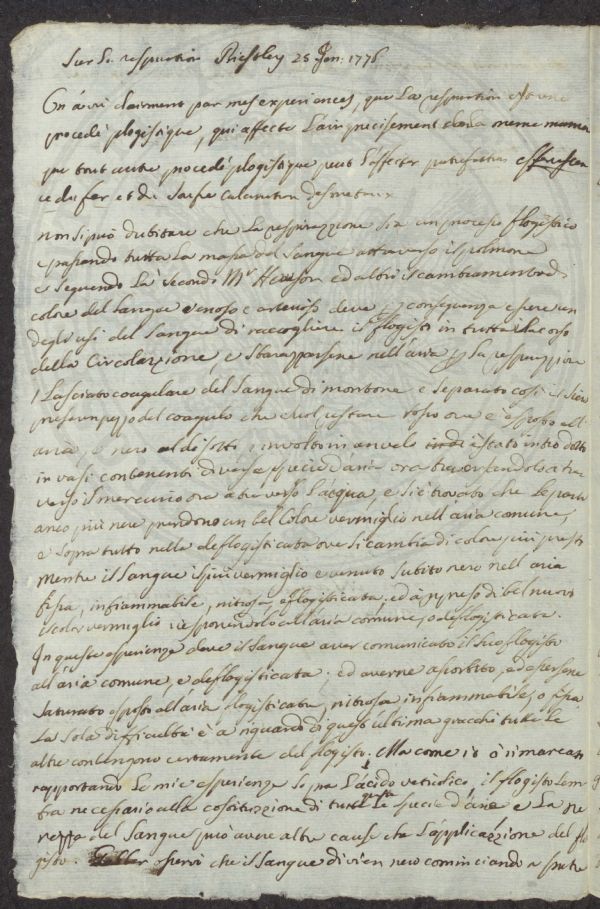 Sur la respiration Priestley 25 Jan: 1776
On a vu clairment par mes experiences, que La respiration est une
procedé plogistique, qui affecte L'air precisement de la meme maniere
que tout autre procedé plogistique peut l'affecter putrefaction effervescen
ce du fer et du Calcination des metaux
non si può dubitare che La respirazione sia un processo flogistico
e passando tutta La massa del Sangue attraverso il polmone
e seguendo La secondo Mr Hewson ed altri il cambiamento di
colore del Sangue venoso e arterioso deve p conseguenza essere un
degli usi del Sangue di raccogliere il flogisti in tutto il corso
della Circolazione, e sbarazzarsene nell'aria p la respirazione
Lasciato coagulare del Sangue di montone e separato così il Siero
preso un pezzo del coagulo che suol restare rosso ove è esposto all
aria, e nero al di sotti, involto in un velo è stato introdotto
in vasi contenenti diverse specie d'aria ora traversandolo a tra
verso il mercurio ora a traverso l'acqua, e si è trovato che le parti
anco più nere prendono un bel Colore vermiglio nell aria comune,
e sopra tutto nella deflogisticata ove si cambia di colore più presti
Mente il Sangue il più vermiglio è venuto subito nero nell aria
fissa, infiammabile, nitrosa, e flogisticata. ed à ripreso di bel nuovo
il color vermiglio riesponendolo all aria comune, o deflogisticata.
In queste esperienze deve il Sangue aver comunicato il suo flogisti
all'aria comune, e deflogisticata. ed averne assorbito, ed essersene
saturato esposto all'aria flogisticata, nitrosa infiammabile, o fissa
La sola difficultà è a riguardo di quest ultima giacchè tutte le
altre contengono certamente del flogisto. Ma come io ò rimarcato
rapportando Le mie esperienze sopra L'acido vetriolico, il flogisto sem
bra necessario alla costituzione di tutte queste le specie d'aria e La ne
rezza del Sangue può avere altre cause che l'applicazione del flo
gisto. osservò che il Sangue divien nero cominciando a putre